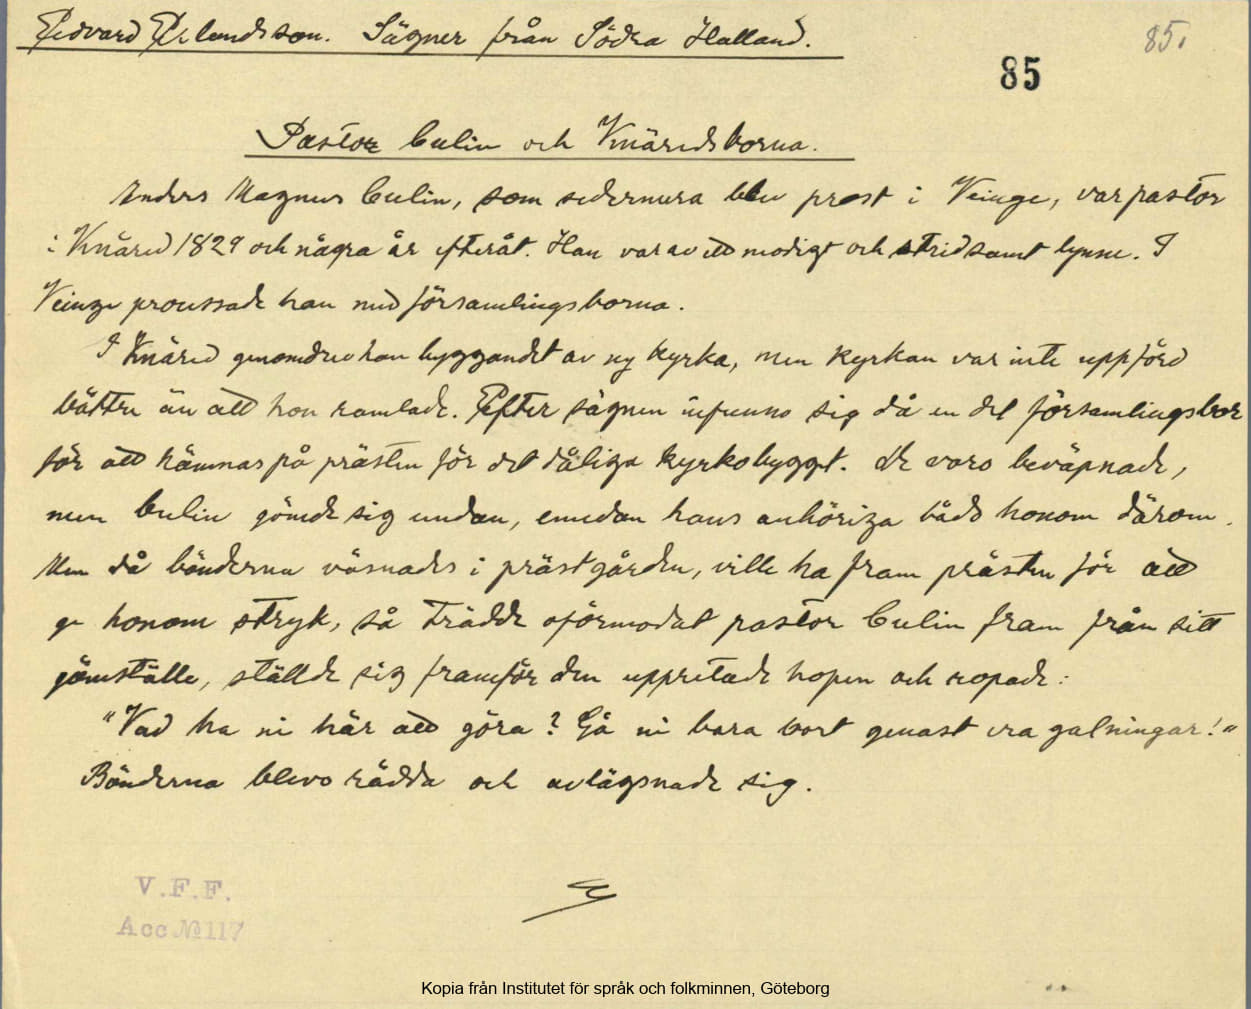 Edvard Erlandsson. Sägner från Södra Halland.
85.
85
Pastor Culin och Knäredsborna.
Anders Magnus Culin, som sedermera blev prost i Veinge, var pastor
i Knäred 1829 och några år efteråt. Han var av ett modigt och stridsamt lynne. I
Veinge processade han med församlingsborna.
I Knäred genomdrev han byggandet av ny kyrka, men kyrkan var inte uppförd
bättre än att hon ramlade. Efter sägnen infunno sig då en del församlingsbor
för att hämnas på prästen för det dåliga kyrkobygget. De voro beväpnade,
men Culin gömde sig undan, emedan hans anhöriga bådo honom därom.
Men då bönderna väsnades i prästgården, ville ha fram prästen för att
ge honom stryk, så trädde oförmodat pastor Culin fram från sitt
gömställe, ställde sig framför den uppretade hopen och ropade:
"Vad ha ni här att göra? Gå ni bara bort genast era galningar!"
Bönderna blevo rädda och avlägsnade sig.
V.F.F.
Acc № 117
Kopia från Institutet för språk och folkminnen, Göteborg